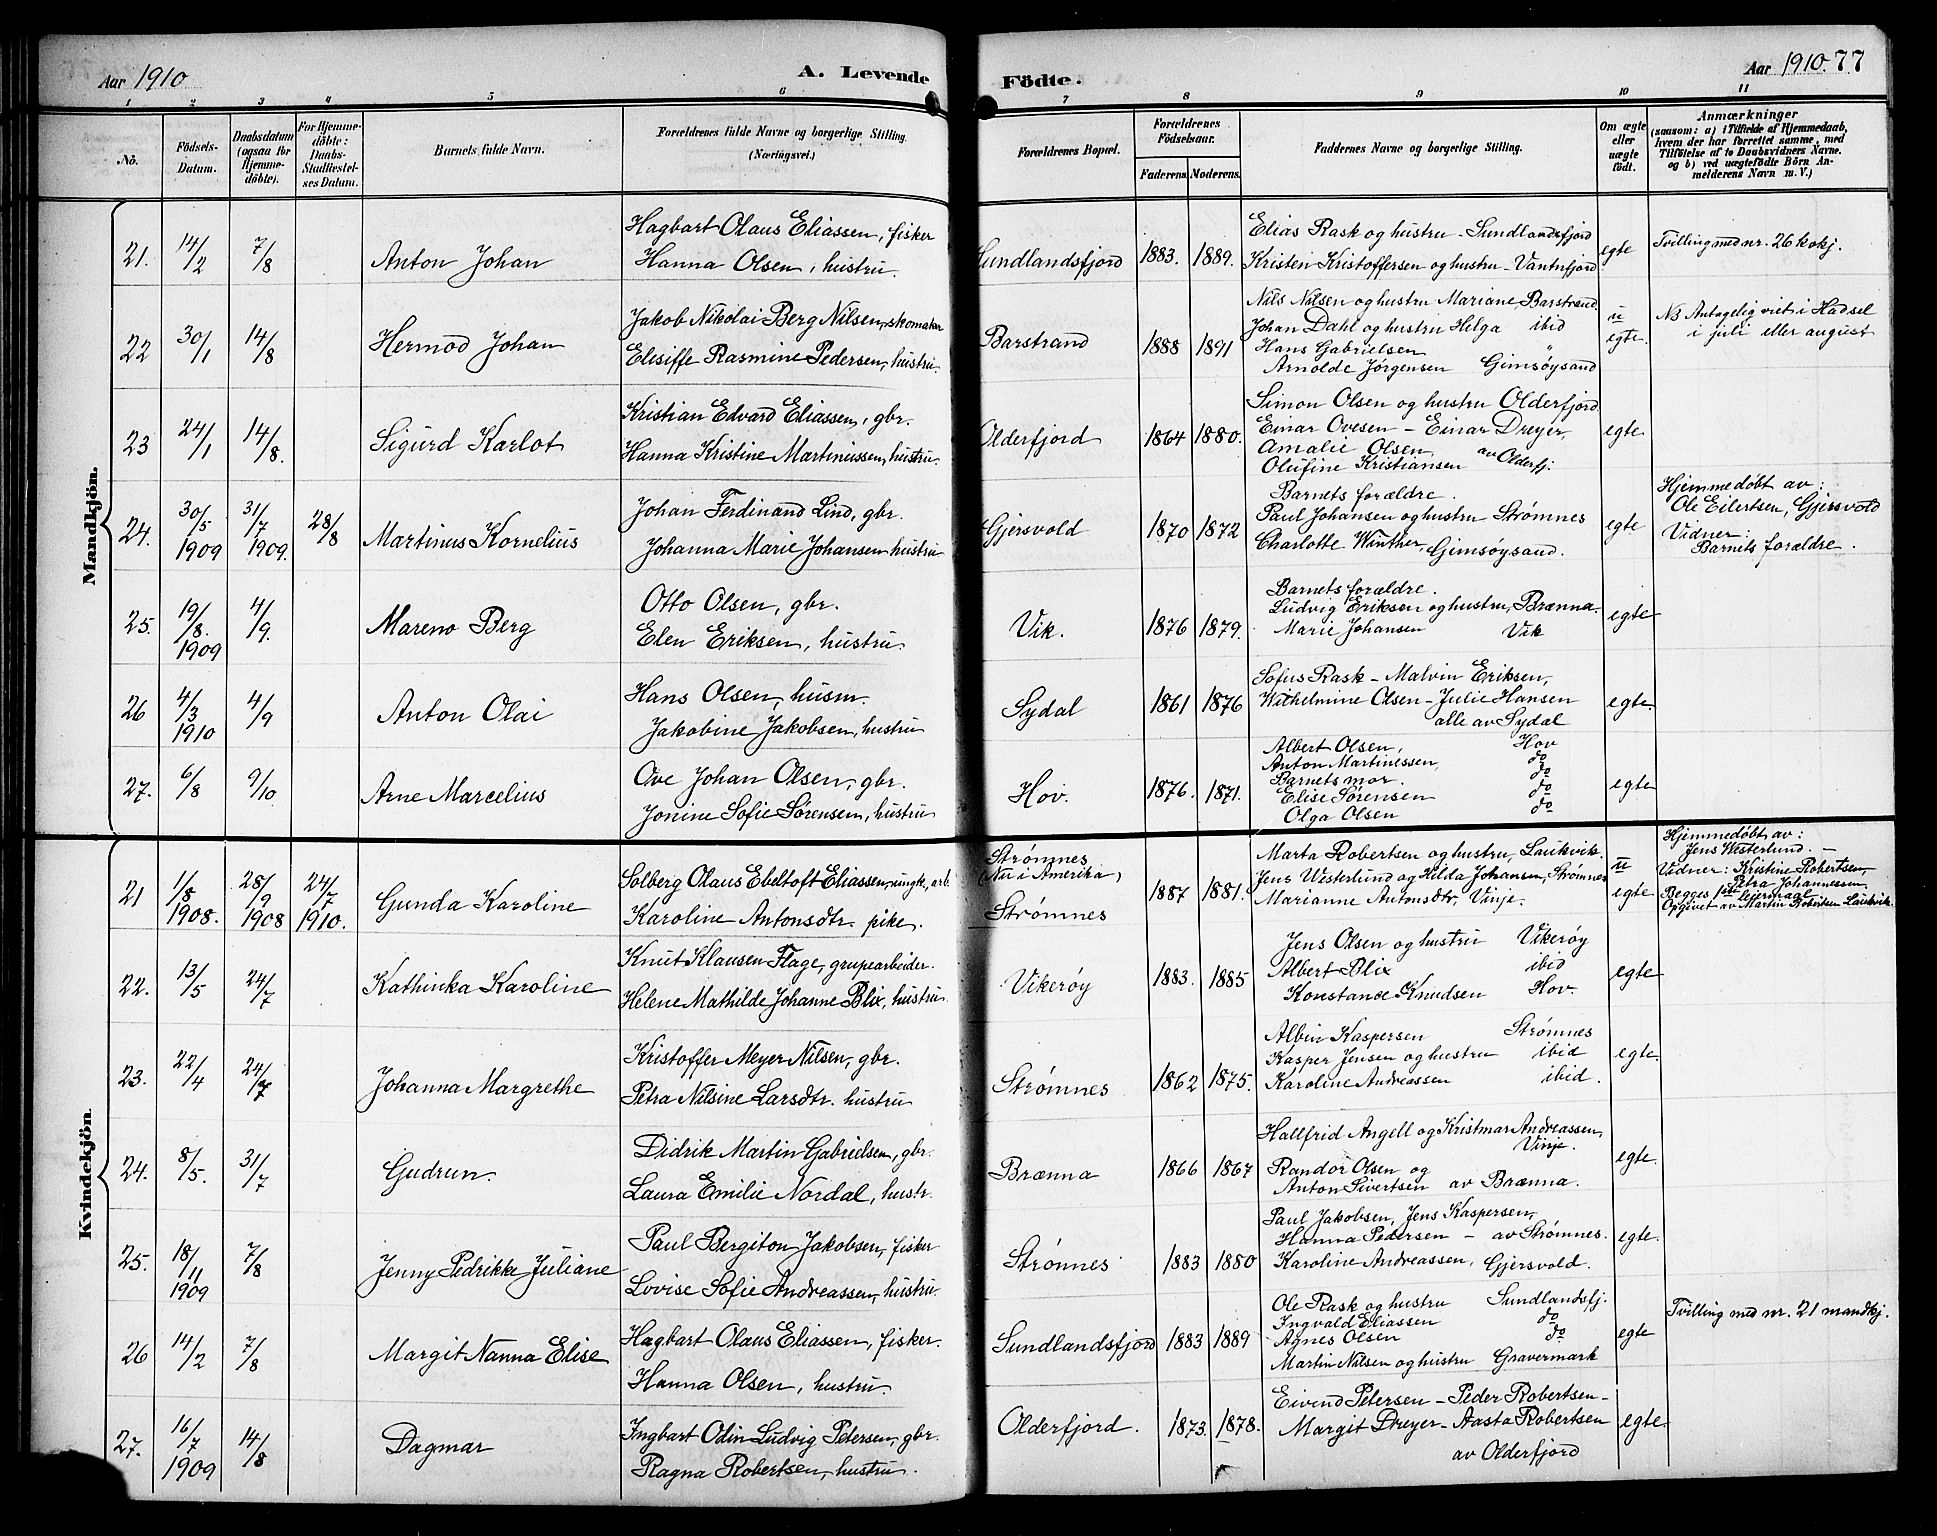 Aar 1910
A. Levende Födte.
Aar 1910. 77
1 2 3 4 5 6 7 8 9 10 11
No.
Födsels-
Datum.
Daabsdatum
(ogsaa for
Hjemme-
döbte).
For Hjemme-
döbte:
Daabs-
Stadfæstel-
ses Datum.
Barnets fulde Navn.
Forældrenes fulde Navne og borgerlige Stilling.
(Næringsvei.)
Forældrenes Bopæl.
Forældrenes
Födselsaar.
Faderens. Moderens.
Faddernes Navne og borgerlige Stilling.
Om ægte
eller
uægte
födt.
Anmærkninger
(saasom: a) i Tilfælde af Hjemmedaab,
hvem der har forrettet samme, med
Tilföielse af to Daabsvidners Navne.
og b) ved uægtefödte Börn An-
melderens Navn m. V.)
Mandkjön.
21. 14/2 7/8 Anton Johan
Hagbart Olaus Eliassen, fisker
Hanna Olsen, hustru.
Sundlandsfjord 1883. 1889.
Elias Rask og hustru - Sundlandsfjord
Kristen Kristoffersen og hustru - Vantnfjord
egte
Tvilling med nr. 26 kvkj.
22 30/1 14/8 Hermod Johan
Jakob Nikolai Berg Nilsen, skomaker
Elisiffe Rasmine Pedersen, hustru.
Barstrand 1888 1891
Nils Nilsen og hustru Mariane, Barstrand
Johan Dahl og hustru Helga ibid
Hans Gabrielsen "
Arnolde Jørgensen Gimsøysand
u
egte.
NB Antagelig viet i Hadsel
i juli eller august
23 24/1 14/8. Sigurd Karlot
Kristian Edvard Eliassen, gbr.
Hanna Kristine Martinussen, hustru.
Olderfjord 1864 1880.
Simon Olsen og hustru Olderfjord
Einar Ovesen - Einar Dreyer,
Amalie Olsen
Olufine Kristiansen av Olderfj:
egte
24. 30/5 1909 31/7 1909. 28/8 Martinus Kornelius
Johan Ferdinand Lind, gbr.
Johanna Marie Johansen, hustru
Gjersvold 1870 1872
Barnets forældre.
Paul Johansen og hustru Strømnes
Charlotte Winther, Gimsøysand.
egte
Hjemmedøbt av:
Ole Eilertsen, Gjersvold
Vidner:
Barnets forældre.
25. 19/8. 1909 4/9. Mareno Berg
Otto Olsen, gbr.
Elen Eriksen, hustru.
Vik. 1876 1879.
Barnets forældre.
Ludvig Eriksen og hustru, Brænna.
Marie Johansen Vik
egte
26 4/3 1910 4/9 Anton Olai
Hans Olsen, husm.
Jakobine Jakobsen, hustru
Sydal 1861 1876
Sofus Rask - Malvin Eriksen,
Wilhelmine Olsen - Julie Hansen
alle av Sydal
egte.
27. 6/8 9/10 Arne Marcelius
Ove Johan Olsen, gbr.
Jonine Sofie Sørensen, hustru
Hov. 1876. 1871.
Albert Olsen, Hov
Anton Martinessen, do
Barnets mor.
Elise Sørensen do
Olga Olsen do
egte
Kvindekjön.
21 1/8 1908. 28/9 1908 24/7 1910. Gunda Karoline
Solberg Olaus Ebeltoft Eliassen, ungk., arb.
Karoline Antonsdtr. pike.
Strømnes
(Nu i Amerika)
Strømnes
1887 1881.
Marta Robertsen og hustru, Laukvik.
Jens Westerlund og Hilda Johansen, Strømnes
Marianne Antonsdtr, Vinje.
u
egte
Hjemmedøbt av:
Jens Westerlund. -
Vidner: Kristine Robertsen,
Petra Johannessen
Begges 1ste leiermaal
Opgivet av Martin Robertsen Laukvik.
22. 13/5 24/7 Kathinka Karoline
Knut Klausen Flage, grupearbeider.
Helene Mathilde Johanne Blix, hustru
Vikerøy 1883. 1885
Jens Olsen og hustru Vikerøy
Albert Blix ibid
Konstance Knudsen Hov.
egte
23. 22/4 24/7 Johanna Margrethe
Kristoffer Meyer Nilsen, gbr.
Petra Nilsine Larsdtr. hustru
Strømnes 1862 1875.
Albin Kaspersen Strømnes
Kasper Jensen og hustru ibid
Karoline Andreassen ibid.
egte.
24. 8/5. 31/7 Gudrun.
Didrik Martin Gabrielsen, gbr.
Laura Emilie Nordal, hustr.
Brænna 1866 1867
Hallfrid Angell og Kristmar Andreassen,
Vinje.
Randor Olsen og
Anton Sivertsen av Brænna.
egte.
25. 18/11 1909 7/8 Jenny Pedrikke Juliane
Paul Bergiton Jakobsen, fisker
Lovise Sofie Andreassen, hustru.
Strømnes 1883 1880
Paul Jakobsen, Jens Kaspersen,
Hanna Pedersen - av Strømnes.
Karoline Andreassen, Gjersvold.
egte.
26 14/2 7/8 Margit Nanna Elise
Hagbart Olaus Eliassen, fisker.
Hanna Olsen, hustru.
Sundlandsfjord 1883 1889
Ole Rask og hustru Sundlandsfj.
Ingvald Eliassen do
Agnes Olsen do
Martin Nilsen og hustru Gravermark
egte
Tvilling med nr. 21 mandkj.
27. 16/7 1909 14/8 Dagmar
Ingbart Odin Ludvig Petersen, gbr.
Ragna Robertsen, hustru.
Olderfjord. 1873. 1878.
Eivind Petersen - Peder Robertsen -
Margit Dreyer - Aasta Robertsen
av Olderfjord
egte